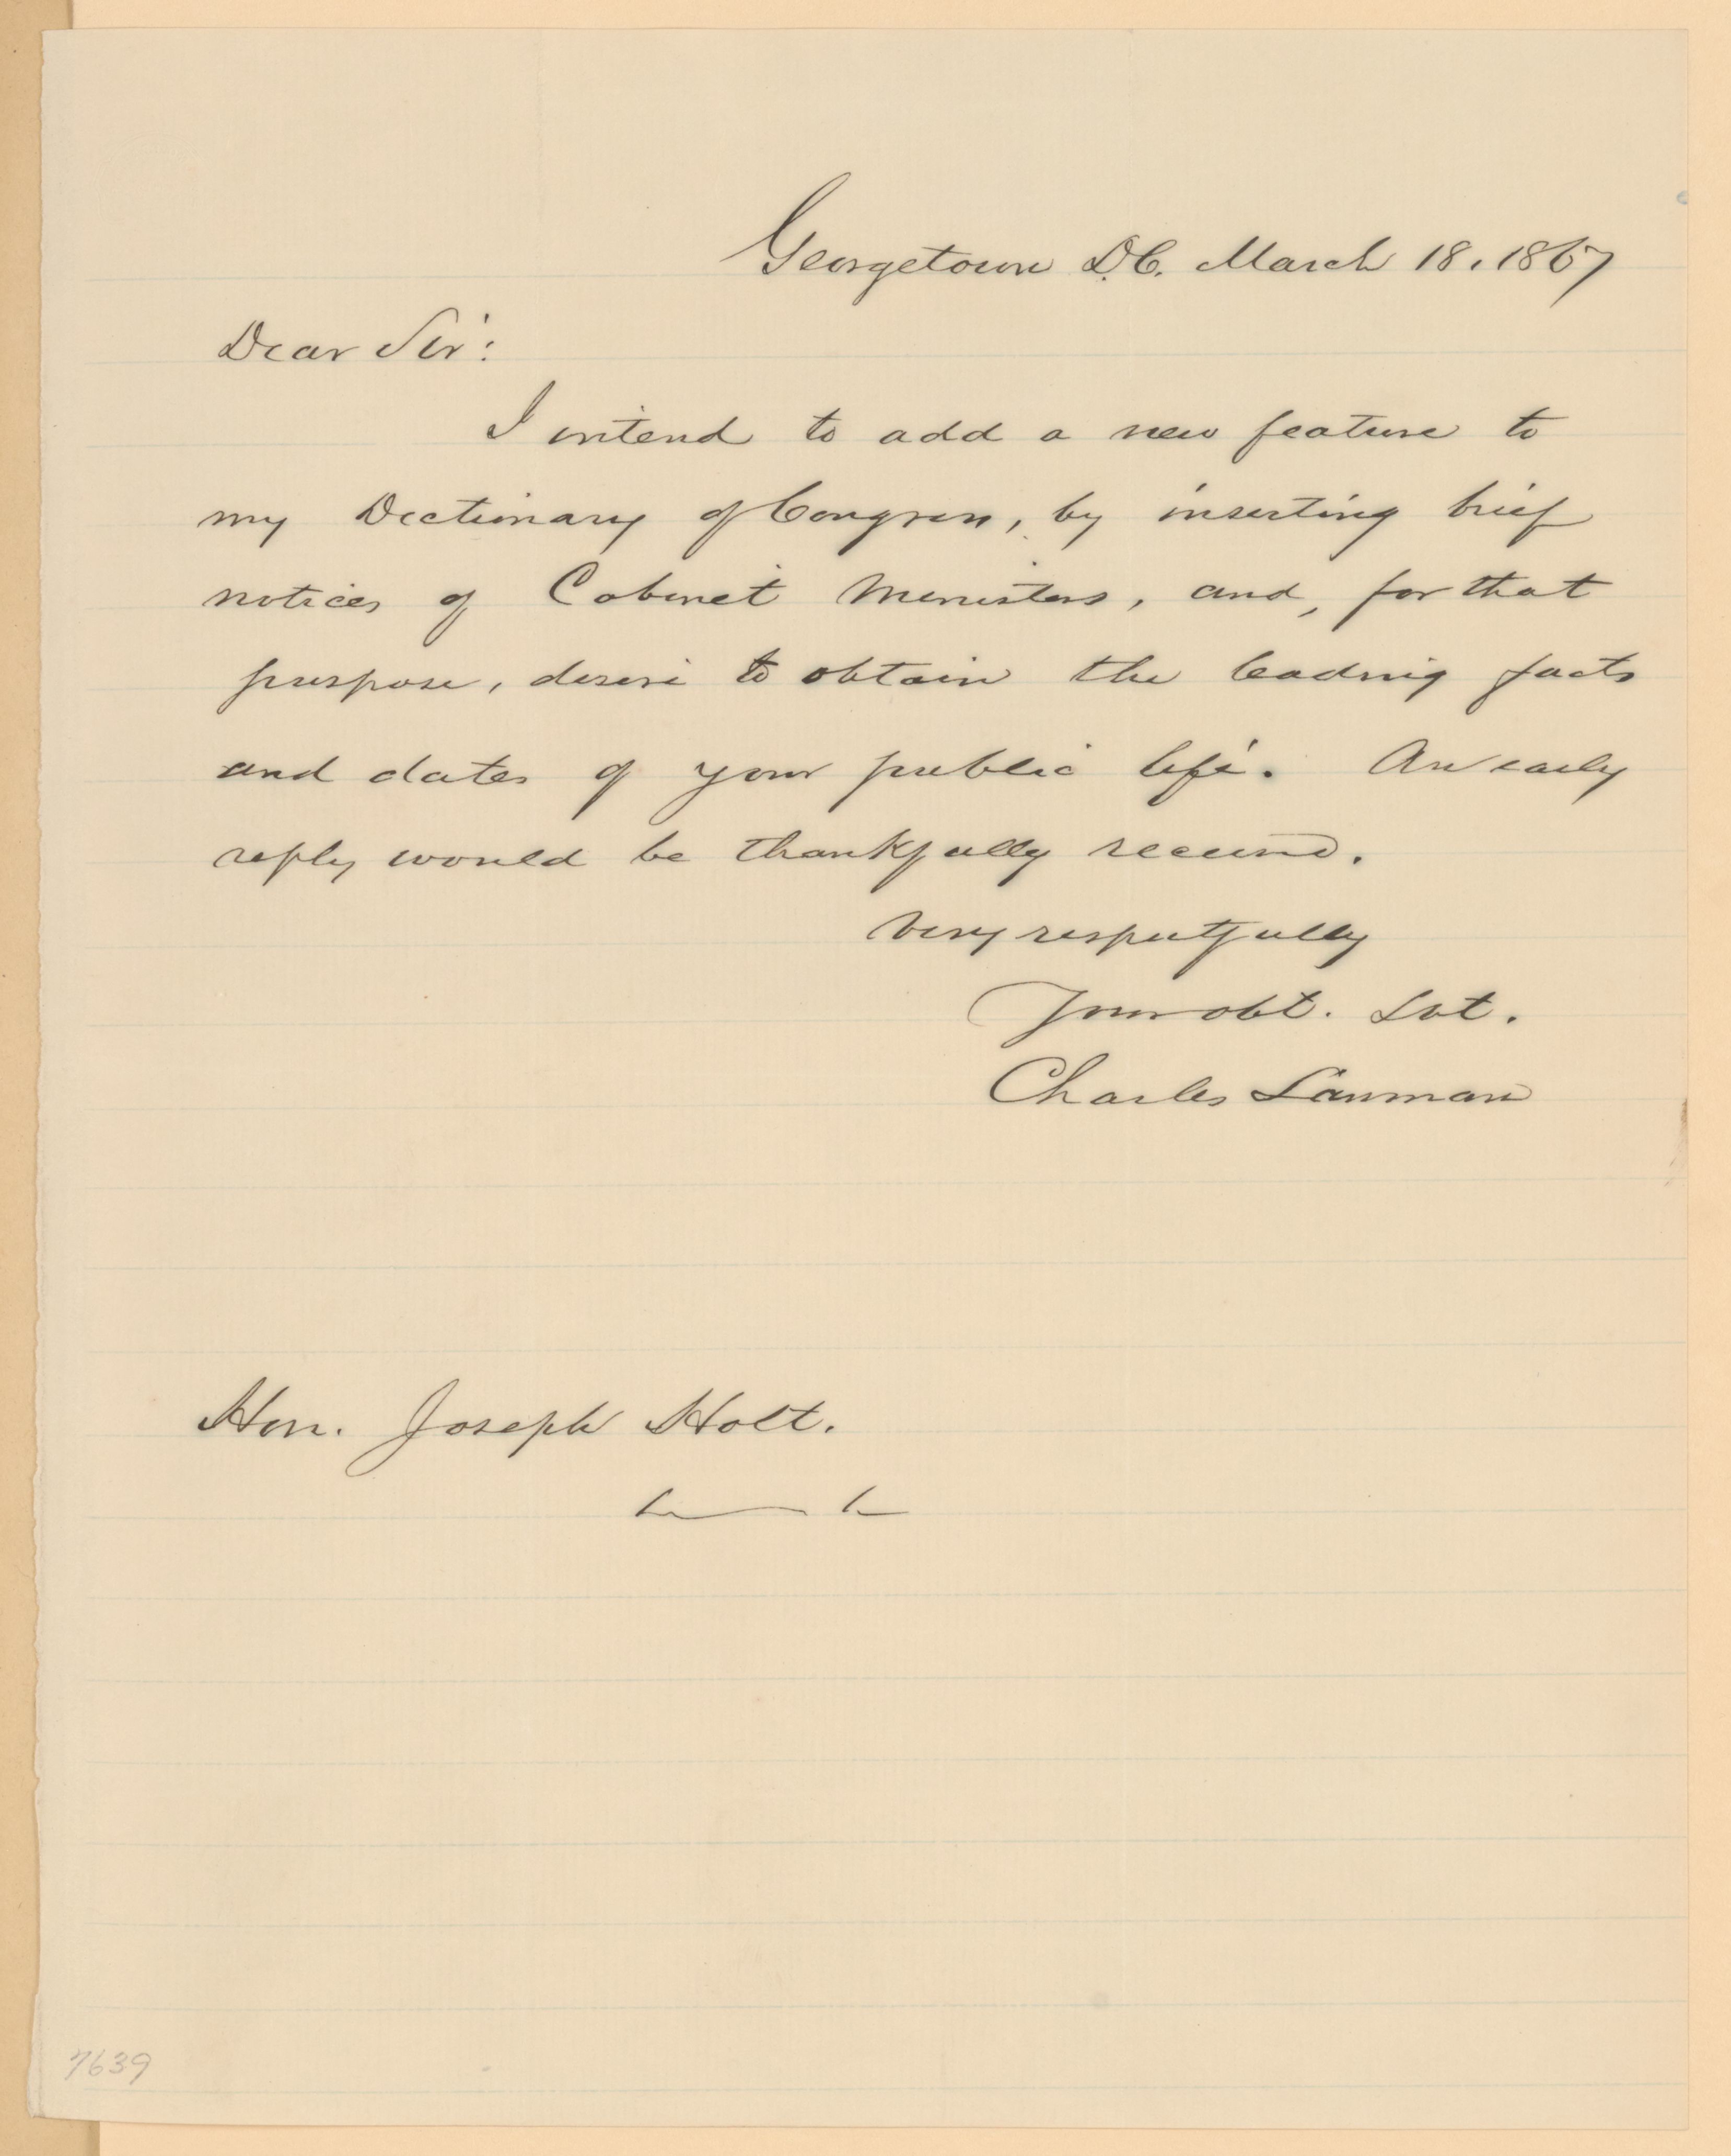 Georgetown D.C. March 18, 1867
Dear Sir:
I intend to add a new feature to
my Dictionary of Congress, by inserting brief
notices of Cabinet Ministers, and, for that
purpose, desire to obtain the leading facts
and dates of your public life. An early
reply would be thankfully received.
Very respectfully
Your obt. Svt.
Charles Lanman
Hon. Joseph Holt.
7639